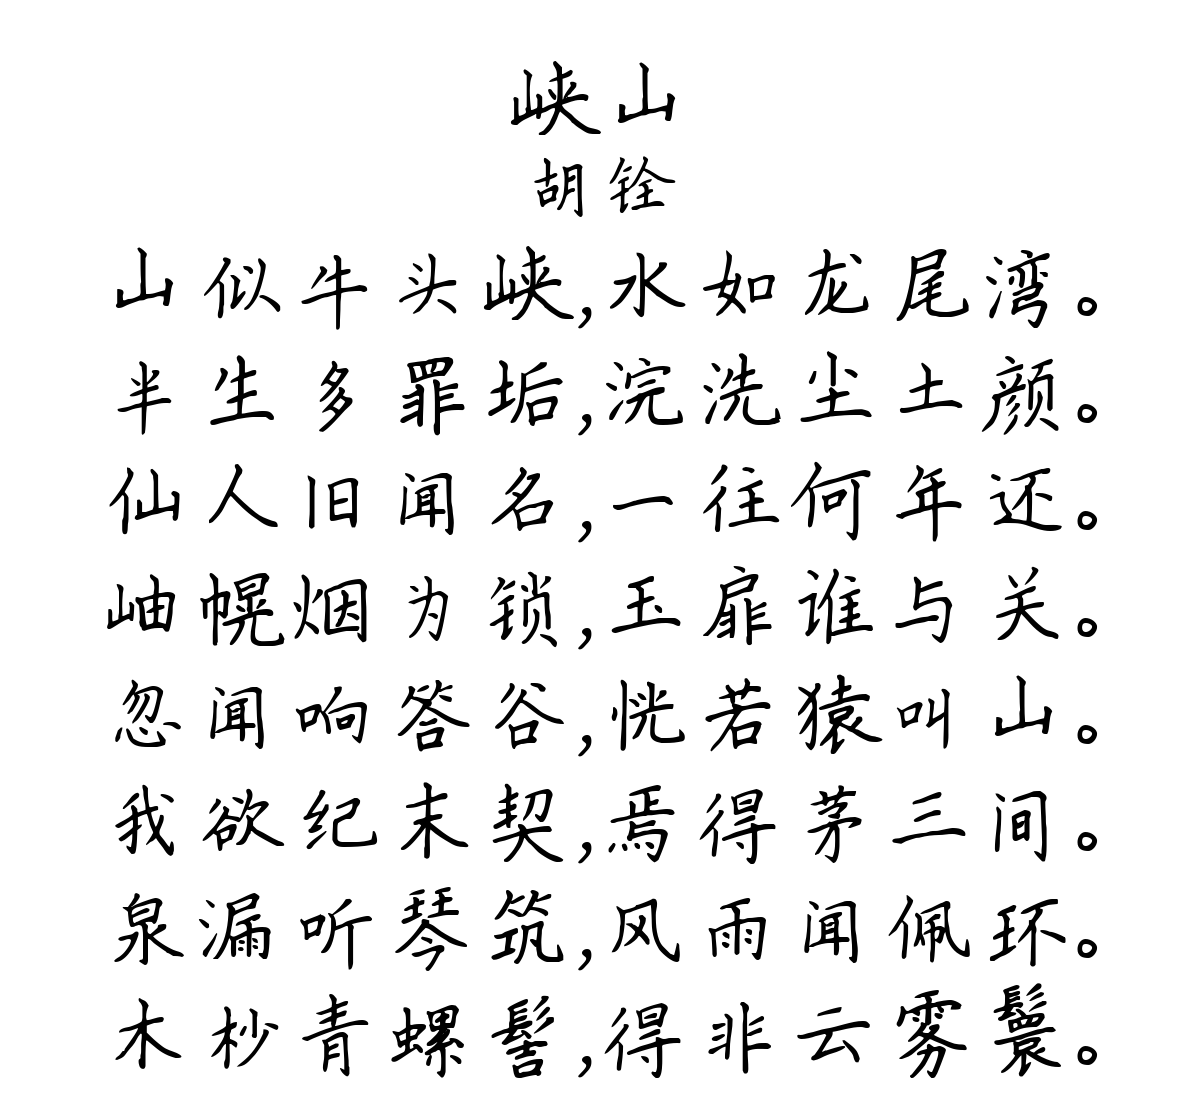 峡山
胡铨
山似牛头峡,水如龙尾湾。
半生多罪垢,浣洗尘土颜。
仙人旧闻名,一往何年还。
岫幌烟为锁,玉扉谁与关。
忽闻响答谷,恍若猿叫山。
我欲纪末契,焉得茅三间。
泉漏听琴筑,风雨闻佩环。
木杪青螺髻,得非云雾鬟。